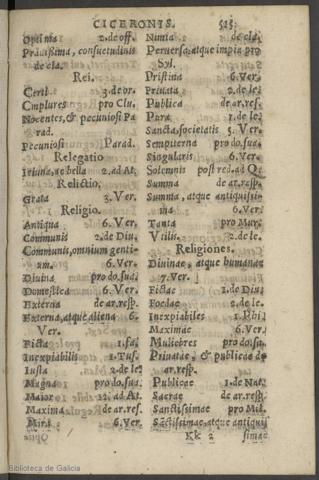 CICERONIS. 525
Optima 2.de off.
Prauissima, consuetudinis
de cla.
Rei.
Certi 3.de or.
Cmplures pro Clu.
Nocentes,& pecuniosi Pa
rad.
Pecuniosi Parad.
Relegatio
Ieiuna, ac bella 2. ad At.
Relictio,
Grata 3. Ver.
Religio.
Antiqua 6. Ver.
Communis 2. de Diu.
Communis,omnium genti-
um. 6. Ver.
Diuina pro do. sua.
Domestica 6. Ver.
Externa de ar.resp.
Externa,atque aliena 6.
Ver.
Ficta 1.fa.
Inexpiabilis 1. Tus.
Iusta 2.de le.
Magna pro do.sua.
Maior 12. ad At.
Maxima de ar.resf.
Mira 6. Ver.
Nimia de cla.
Peruersa, atque impia pro
Syl.
Pristina 6. Ver.
Priuata 2. de le.
Publica de ar.res.
Pura 1. de le.
Sancta,societatis 5. Ver.
Sempiterna pro do.sua.
Singularis 6. Ver.
Solemnis post red.ad Q.
Summa de ar.resp.
Summa, atque antiquissi-
ma 6. Ver.
Tanta pro Mur.
Vtilis. 2. de le.
Religiones.
Diuinae, atque humanae
7. Ver.
Fictae 1.de Diu.
Foedae 2. de le.
Inexpiabiles 1. Phi.
Maximae 6. Ver.
Muliebres pro do.su.
Priuatae, & publicae de
ar.resp.
Publicae 1.de Nat.
Sacrae de ar.resp.
Sanctissimae pro Mil.
Sãctissimae,atque antiquis
Kk 2 simae
Biblioteca de Galicia